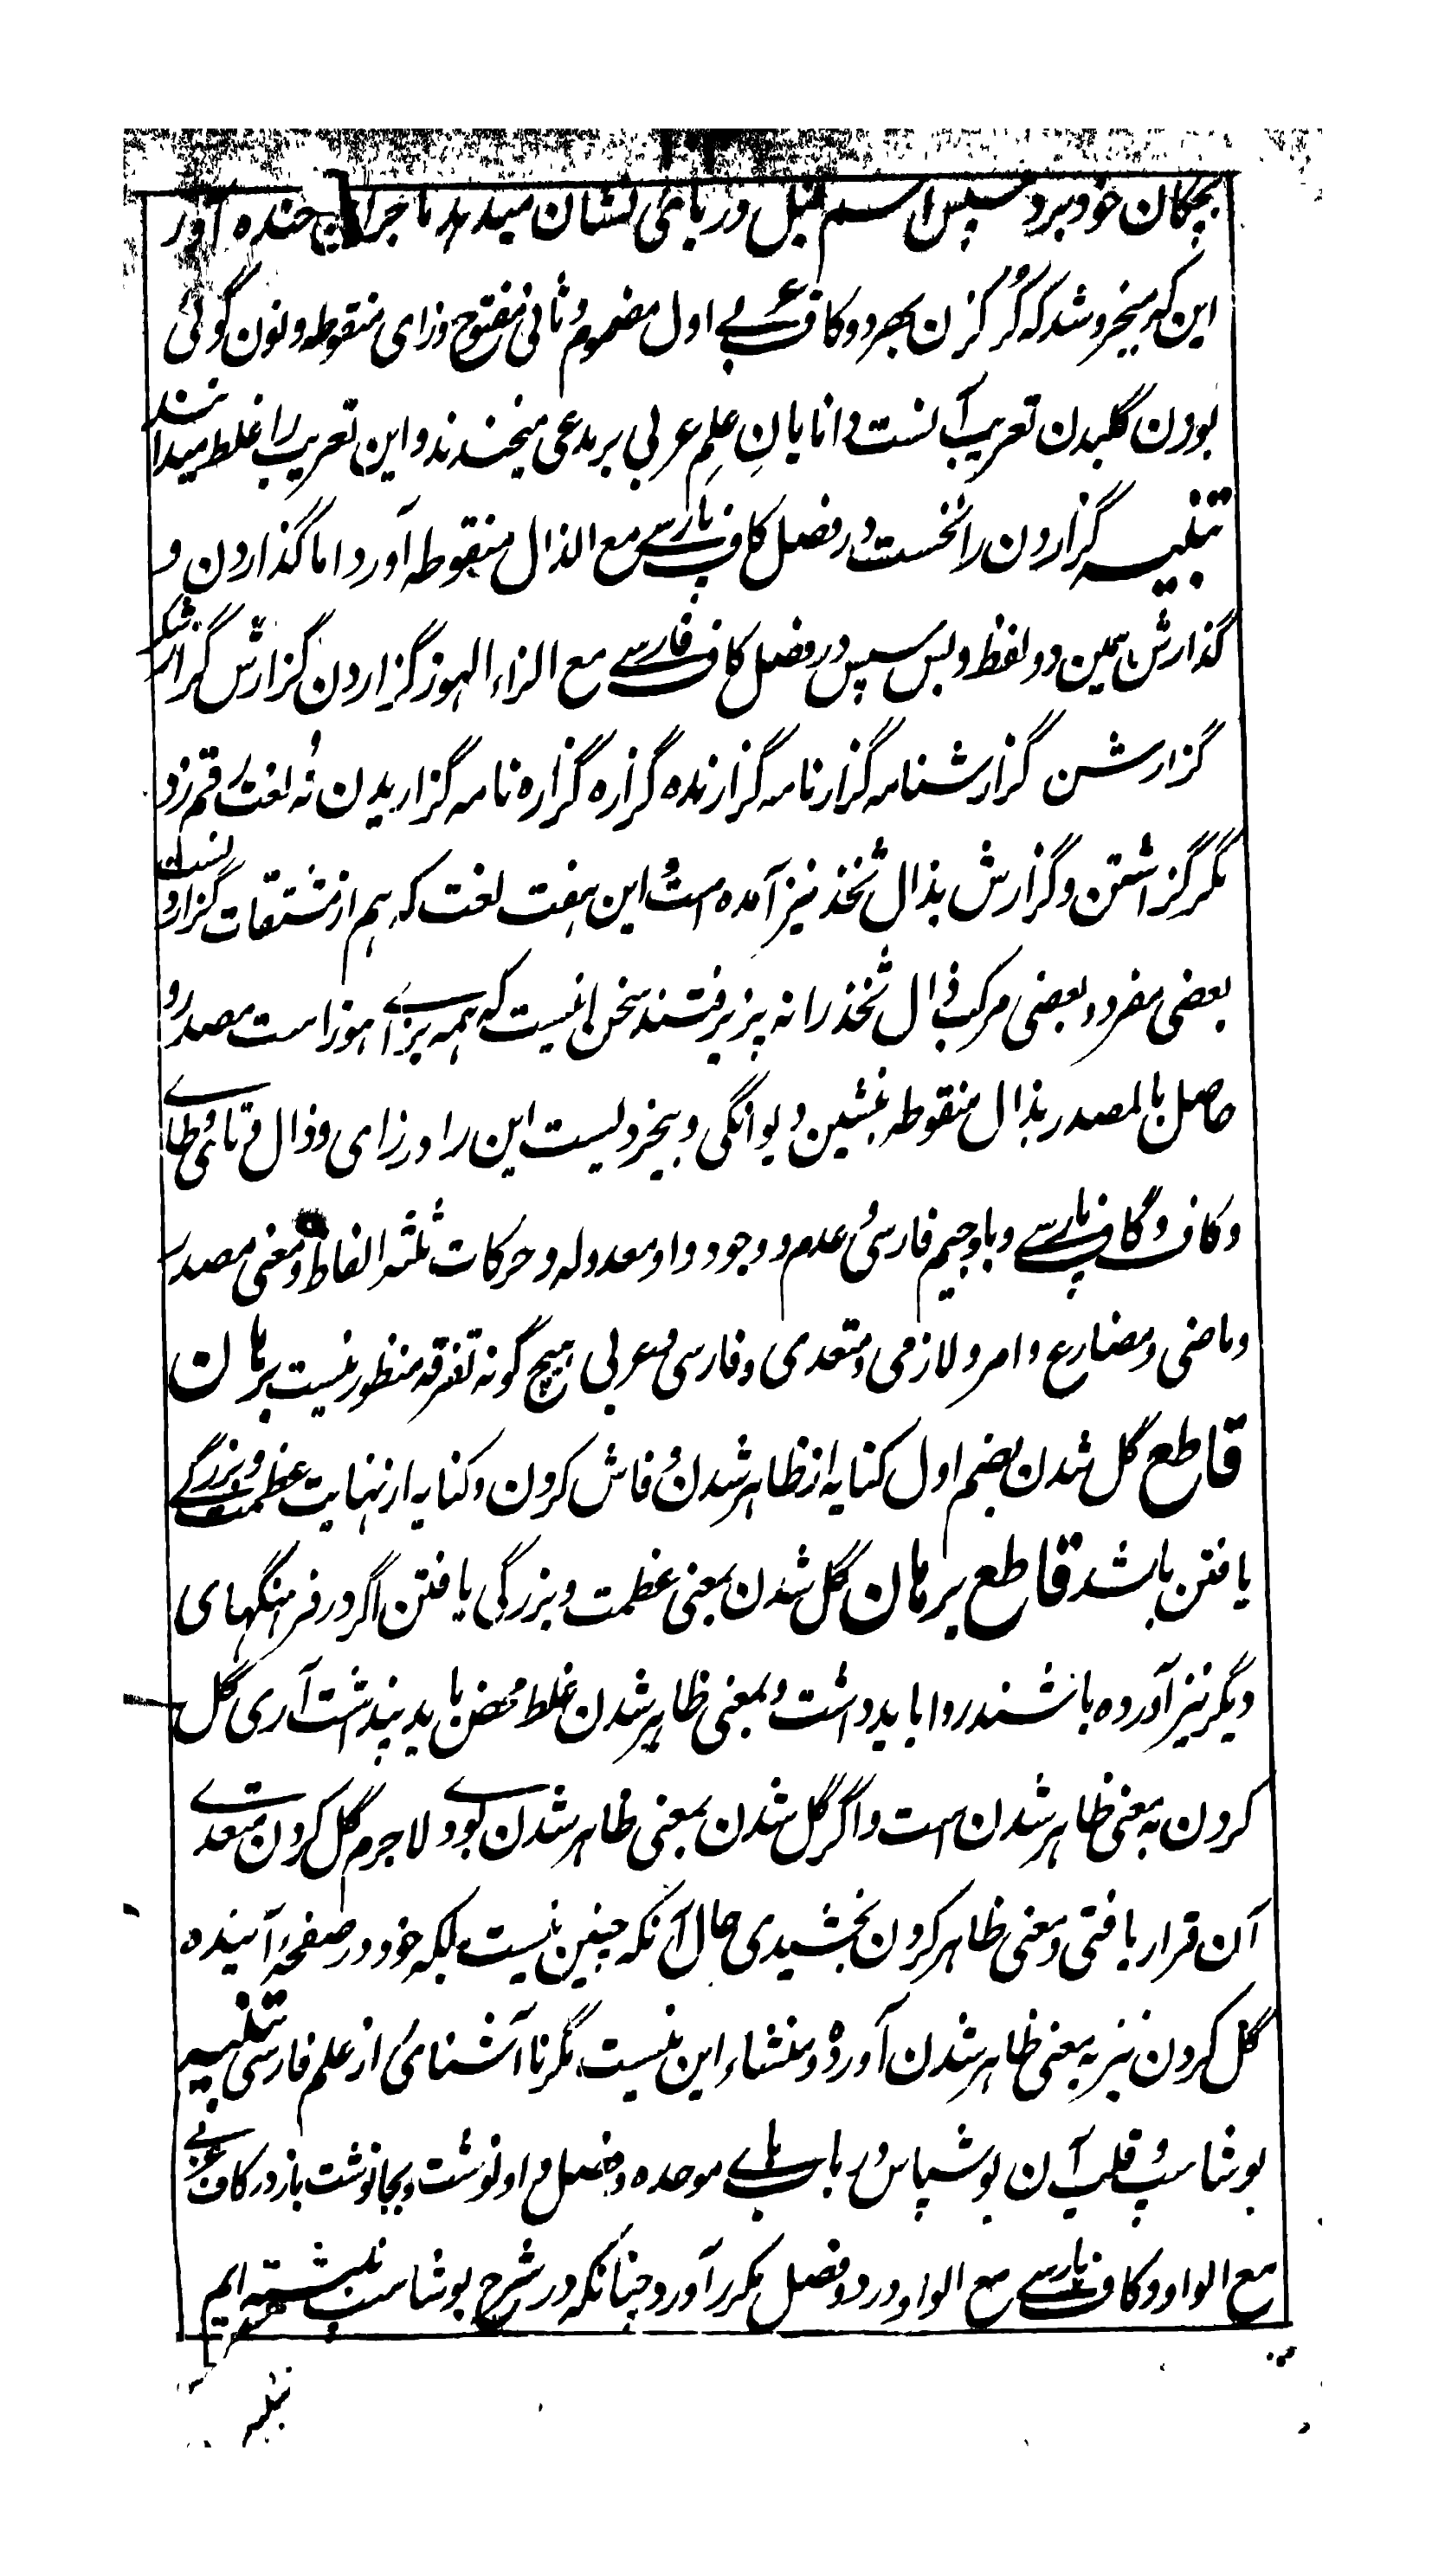 بچگان خود برد سپس اسم فیل دریائی نشان میدهد ماجرای خنده آور
این که میخروشد که کُرکَزن بهر دو کاف عربے اول مضموم و ثانی مفتوح و زای منقوطه و نون گوئی
بوزن گلبدن تعریب آنست دانایانِ علمِ عربی بر مدعی میخندند و این تعریب را غلط میدانند
تنبیه گزاردن را نخست در فصل کاف پارسے مع الذال منقوطه آورد اما گذاردن و
گذارش همین دو لفظ و بس سپس در فصل کاف فارسے مع الزاء الهوز گزاردن گزارش گزارشگر
گزارشن گزارشنامه گزارنامه گزارنده گزاره گزاره نامه گزاریدن نُه لغت رقم زد
مگر گزاشتن و گزارش بذال ثخذ نیز آمده است این هفت لغت که هم از مشتقات گزاردنست
بعضی مفرد و بعضی مرکب ذال ثخذ را نه پزیرفتند سخن اینست که همه بزاے هوز است مصدر و
حاصل بالمصدر بذال منقوطه نبشتن دیوانگی و بیخردیست این را در زای و ذال و تای و طاے
و کاف و گاف پارسے و با و جیم فارسی و عدم و وجود واو معدوله و حرکات ثلثه الفاظ و معنی مصدر
و ماضی و مضارع و امر و لازمی و متعدی و فارسی و عربی هیچ گونه تفرقه منظور نیست برهان
قاطع گل شدن بضم اول کنایه از ظاهر شدن و فاش کردن و کنایه از نهایت عظمت و بزرگے
یافتن باشد قاطع برهان گل شدن بمعنی عظمت و بزرگی یافتن اگر در فرهنگهای
دیگر نیز آورده باشند روا باید داشت و بمعنی ظاهر شدن غلط محض باید پنداشت آری گل
کردن به معنی ظاهر شدن است و اگر گل شدن بمعنی ظاهر شدن بودے لاجرم گل کردن متعدے
آن قرار یافتی و معنی ظاهر کردن بخشیدی حال آنکه چنین نیست بلکه خود در صفحهٔ آینده
گل کردن نیز به معنی ظاهر شدن آورده و منشاء این نیست مگر ناآشنائی از علم فارسی تنبیه
بوشاسپ و قلب آن بوشپاس در باب باے موحده و فصل واو نوشت و بجا نوشت باز در کاف عربی
مع الواو و کاف پارسے مع الواو در دو فصل مکرر آورد چنانکه در شرح بوشاسپ نبشته ایم
تنبیه